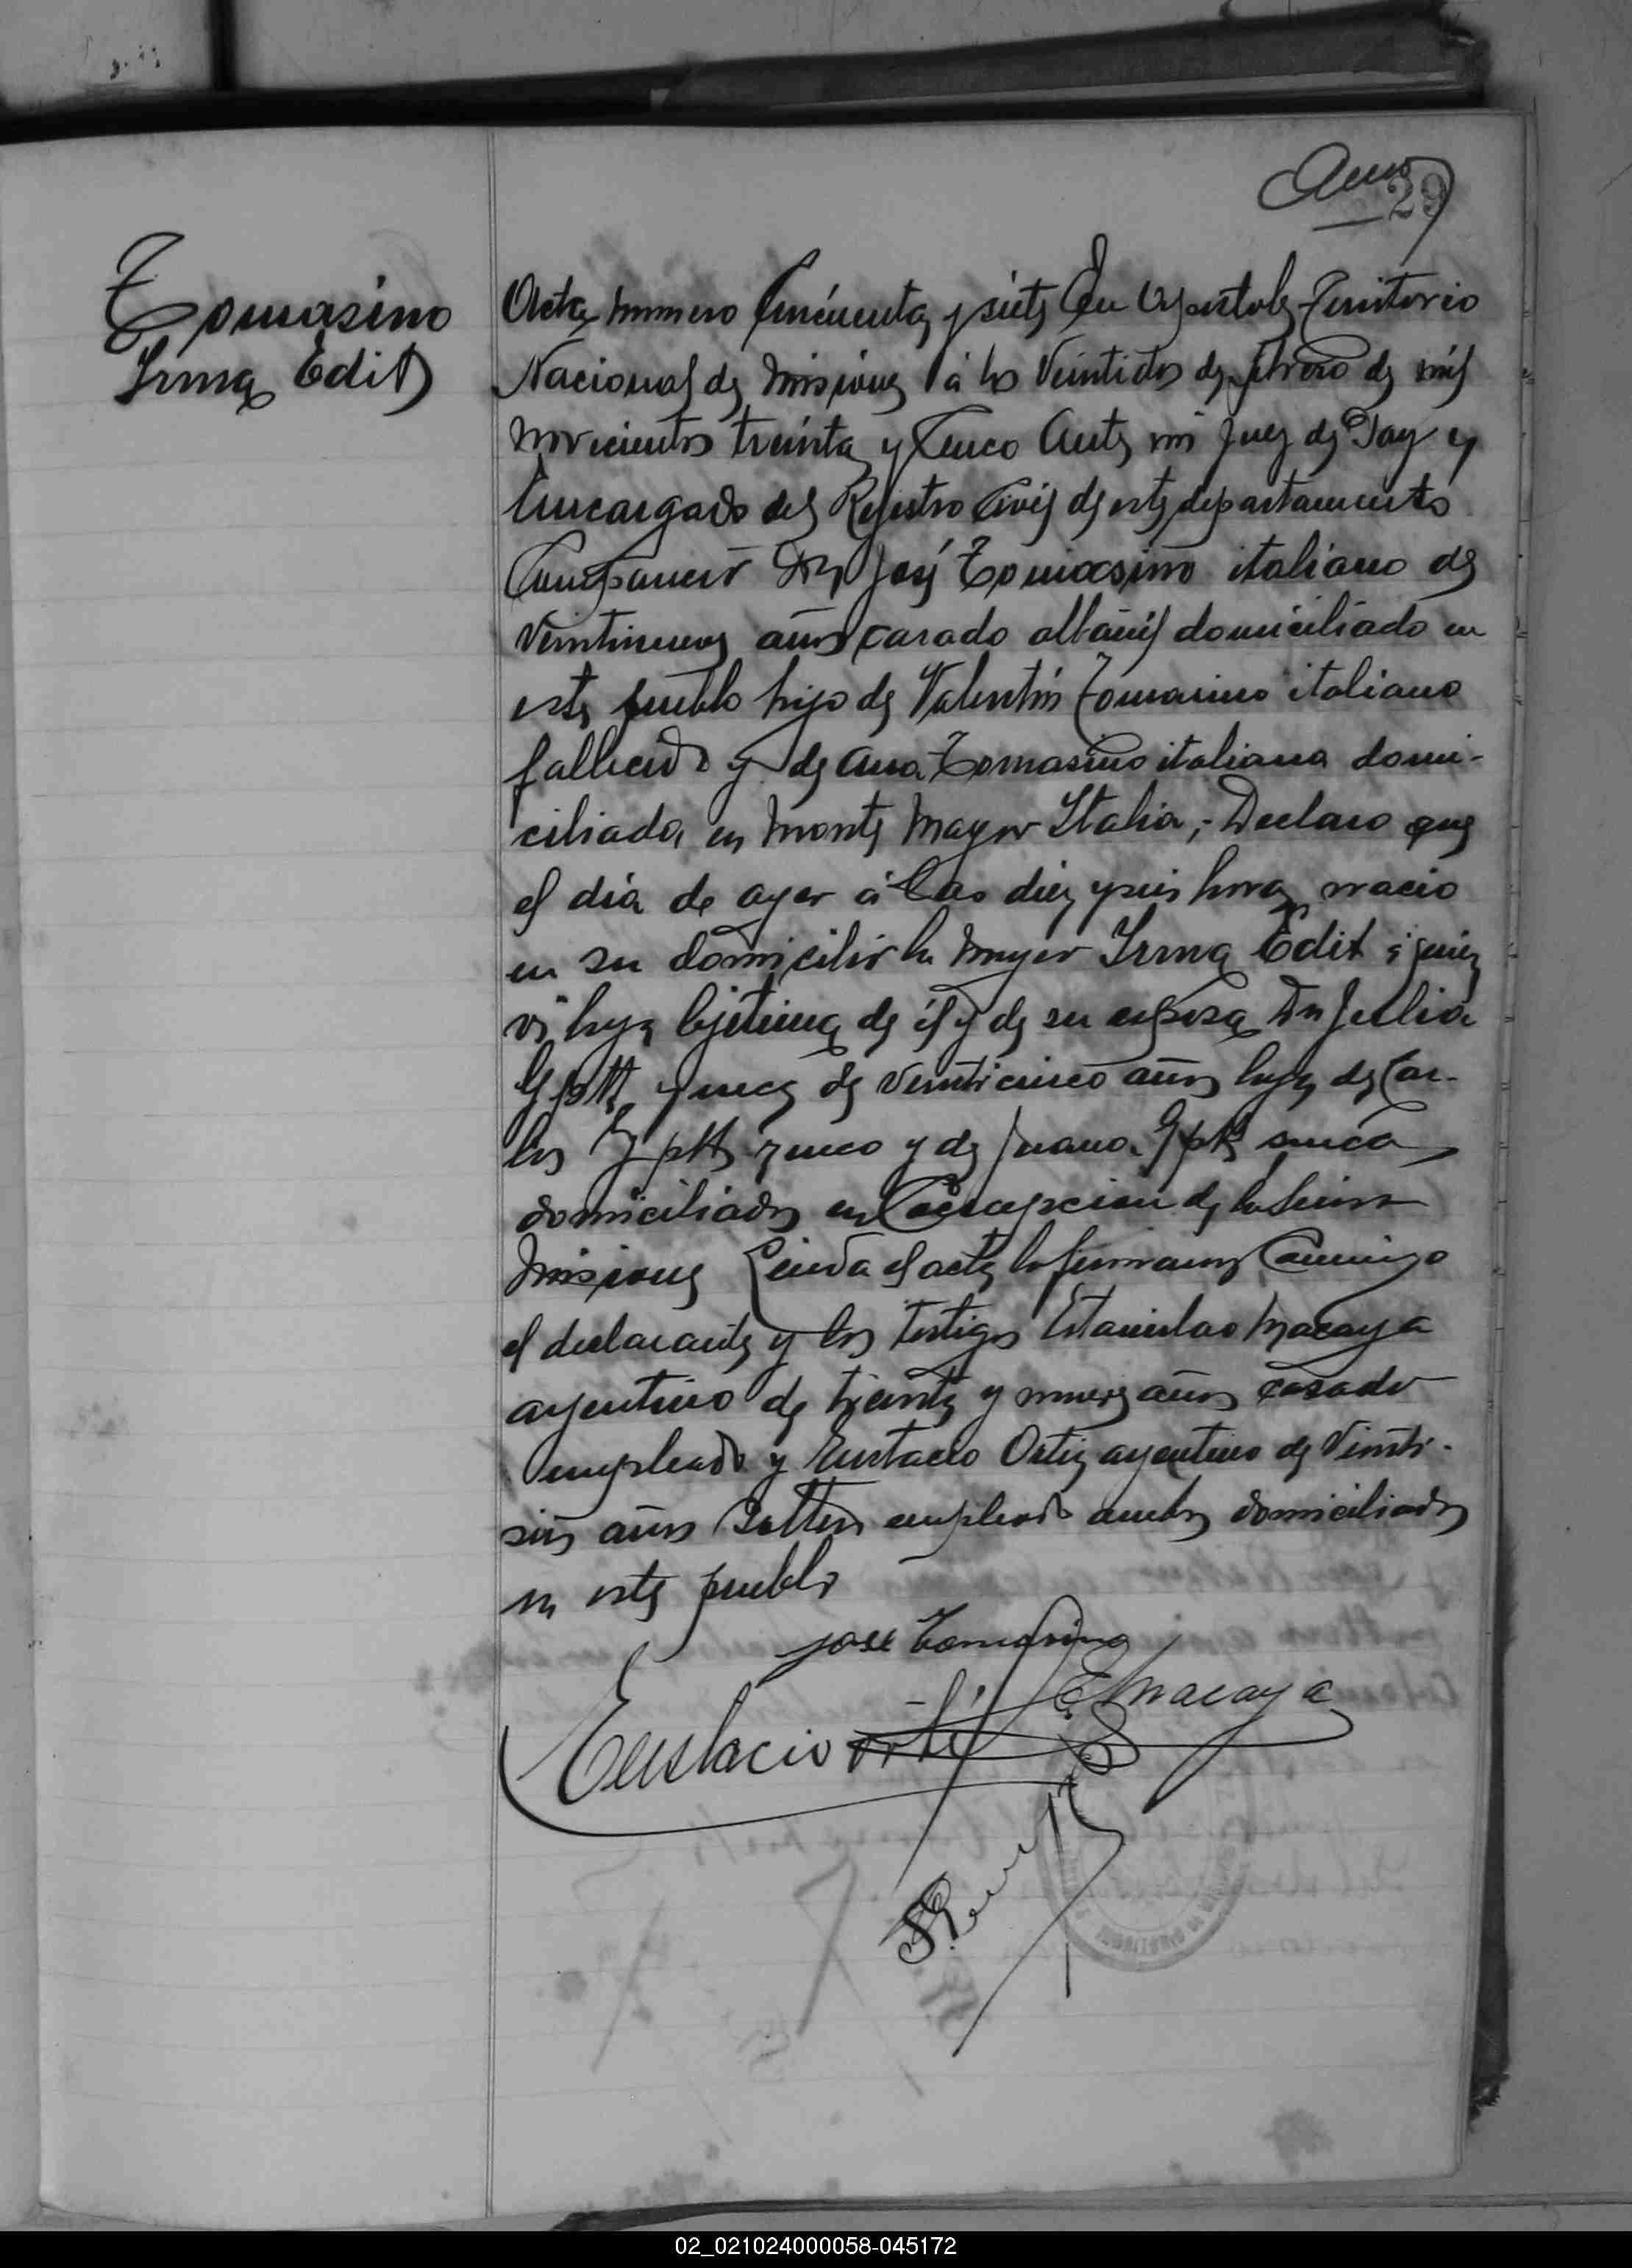 29
Tomasino
Irma Edit
Acta numero Cincuenta y siete En Apostoles Territorio
Nacional de Misiones á los Veintidos de febrero de mil
novecientos treinta y Cinco Ante mi Juez de Paz y
Encargado del Rejistro Civil de este departamento
Compareció Dn José Tomasino italiano de
Veintinueve años casado albañil domiciliado en
este pueblo hijo de Valentín Tomasino italiano
fallecido y de Ana Tomasino italiana domi-
ciliada en Monte Mayor Italia,- Declaro que
el día de ayer á las diez y seis horas nacio
en su domicilio la mujer Irma Edit á quien
vi hija lejitima de él y de su esposa Da Julia
suiza de Veinticinco años hija de Car-
los suizo y de Juana suiza
domiciliados en Concepcion de la Sierra
Misiones Leida el acta la firmaron Conmigo
el declarante y los testigos Estanislao Macaya
argentino de treinta y nueve años casado
empleado y Eustacio Ortiz argentino de Veinti-
seis años Soltero empleado ambos domiciliados
en este pueblo
jose Tomasino
E. Macaya
Eustacio Ortiz
02_021024000058-045172